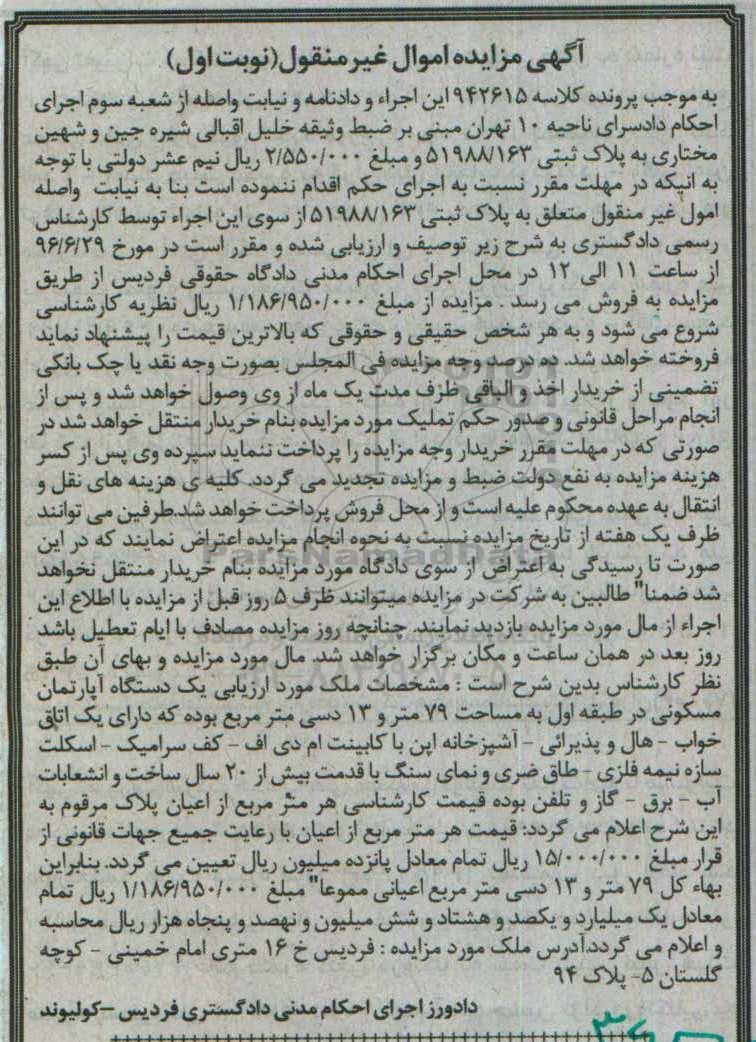 آگهی مزایده اموال غیرمنقول(نوبت اول)
به موجب پرونده کلاسه ۹۴۲۶۱۵ این اجراء و دادنامه و نیابت واصله از شعبه سوم اجرای
احکام دادسرای ناحیه ۱۰ تهران مبنی بر ضبط وثیقه خلیل اقبالی شیره جین و شهین
مختاری به پلاک ثبتی ۵۱۹۸۸/۱۶۳ و مبلغ ۲/۵۵۰/۰۰۰ ریال نیم عشر دولتی با توجه
به اینکه در مهلت مقرر نسبت به اجرای حکم اقدام ننموده است بنا به نیابت واصله
امول غیر منقول متعلق به پلاک ثبتی ۵۱۹۸۸/۱۶۳ از سوی این اجراء توسط کارشناس
رسمی دادگستری به شرح زیر توصیف و ارزیابی شده و مقرر است در مورخ ۹۶/۶/۲۹
از ساعت ۱۱ الی ۱۲ در محل اجرای احکام مدنی دادگاه حقوقی فردیس از طریق
مزایده به فروش می رسد . مزایده از مبلغ ۱/۱۸۶/۹۵۰/۰۰۰ ریال نظریه کارشناسی
شروع می شود و به هر شخص حقیقی و حقوقی که بالاترین قیمت را پیشنهاد نماید
فروخته خواهد شد. ده درصد وجه مزایده فی المجلس بصورت وجه نقد یا چک بانکی
تضمینی از خریدار اخذ و الباقی ظرف مدت یک ماه از وی وصول خواهد شد و پس از
انجام مراحل قانونی و صدور حکم تملیک مورد مزایده بنام خریدار منتقل خواهد شد در
صورتی که در مهلت مقرر خریدار وجه مزایده را پرداخت ننماید سپرده وی پس از کسر
هزینه مزایده به نفع دولت ضبط و مزایده تجدید می گردد. کلیه ی هزینه های نقل و
انتقال به عهده محکوم علیه است و از محل فروش پرداخت خواهد شد.طرفین می توانند
ظرف یک هفته از تاریخ مزایده نسبت به نحوه انجام مزایده اعتراض نمایند که در این
صورت تا رسیدگی به اعتراض از سوی دادگاه مورد مزایده بنام خریدار منتقل نخواهد
شد ضمنا" طالبین به شرکت در مزایده میتوانند ظرف ۵ روز قبل از مزایده با اطلاع این
اجراء از مال مورد مزایده بازدید نمایند. چنانچه روز مزایده مصادف با ایام تعطیل باشد
روز بعد در همان ساعت و مکان برگزار خواهد شد. مال مورد مزایده و بهای آن طبق
نظر کارشناس بدین شرح است : مشخصات ملک مورد ارزیابی یک دستگاه آپارتمان
مسکونی در طبقه اول به مساحت ۷۹ متر و ۱۳ دسی متر مربع بوده که دارای یک اتاق
خواب - هال و پذیرائی - آشپزخانه اپن با کابینت ام دی اف - کف سرامیک - اسکلت
سازه نیمه فلزی - طاق ضری و نمای سنگ با قدمت بیش از ۲۰ سال ساخت و انشعابات
آب - برق - گاز و تلفن بوده قیمت کارشناسی هر متر مربع از اعیان پلاک مرقوم به
این شرح اعلام می گردد: قیمت هر متر مربع از اعیان با رعایت جمیع جهات قانونی از
قرار مبلغ ۱۵/۰۰۰/۰۰۰ ریال تمام معادل پانزده میلیون ریال تعیین می گردد. بنابراین
بهاء کل ۷۹ متر و ۱۳ دسی متر مربع اعیانی مموعا" مبلغ ۱/۱۸۶/۹۵۰/۰۰۰ ریال تمام
معادل یک میلیارد و یکصد و هشتاد و شش میلیون و نهصد و پنجاه هزار ریال محاسبه
و اعلام می گردد.آدرس ملک مورد مزایده : فردیس خ ۱۶ متری امام خمینی - کوچه
گلستان ۵- پلاک ۹۴
دادورز اجرای احکام مدنی دادگستری فردیس –کولیوند
ParsNamadData